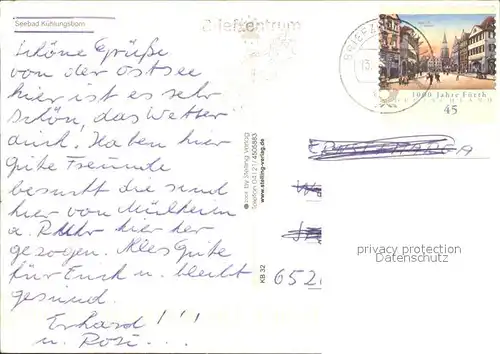 Seebad Kühlungsborn
Briefzentrum
Schöne Grüße
von der Ostsee
hier ist es sehr
schön, das Wetter
auch. Haben hier
gute Freunde
besucht die sind
hier von Mülheim
a. Ruhr hier her
gezogen. Alles Gute
für Euch u. bleibt
gesund.
Erhard!!!
u. Rosi...
www.stelling-verlag.de
KB 32
BRIEFZENTRUM
1000 Jahre Fürth
DEUTSCHLAND
45
652
privacy protection
Datenschutz